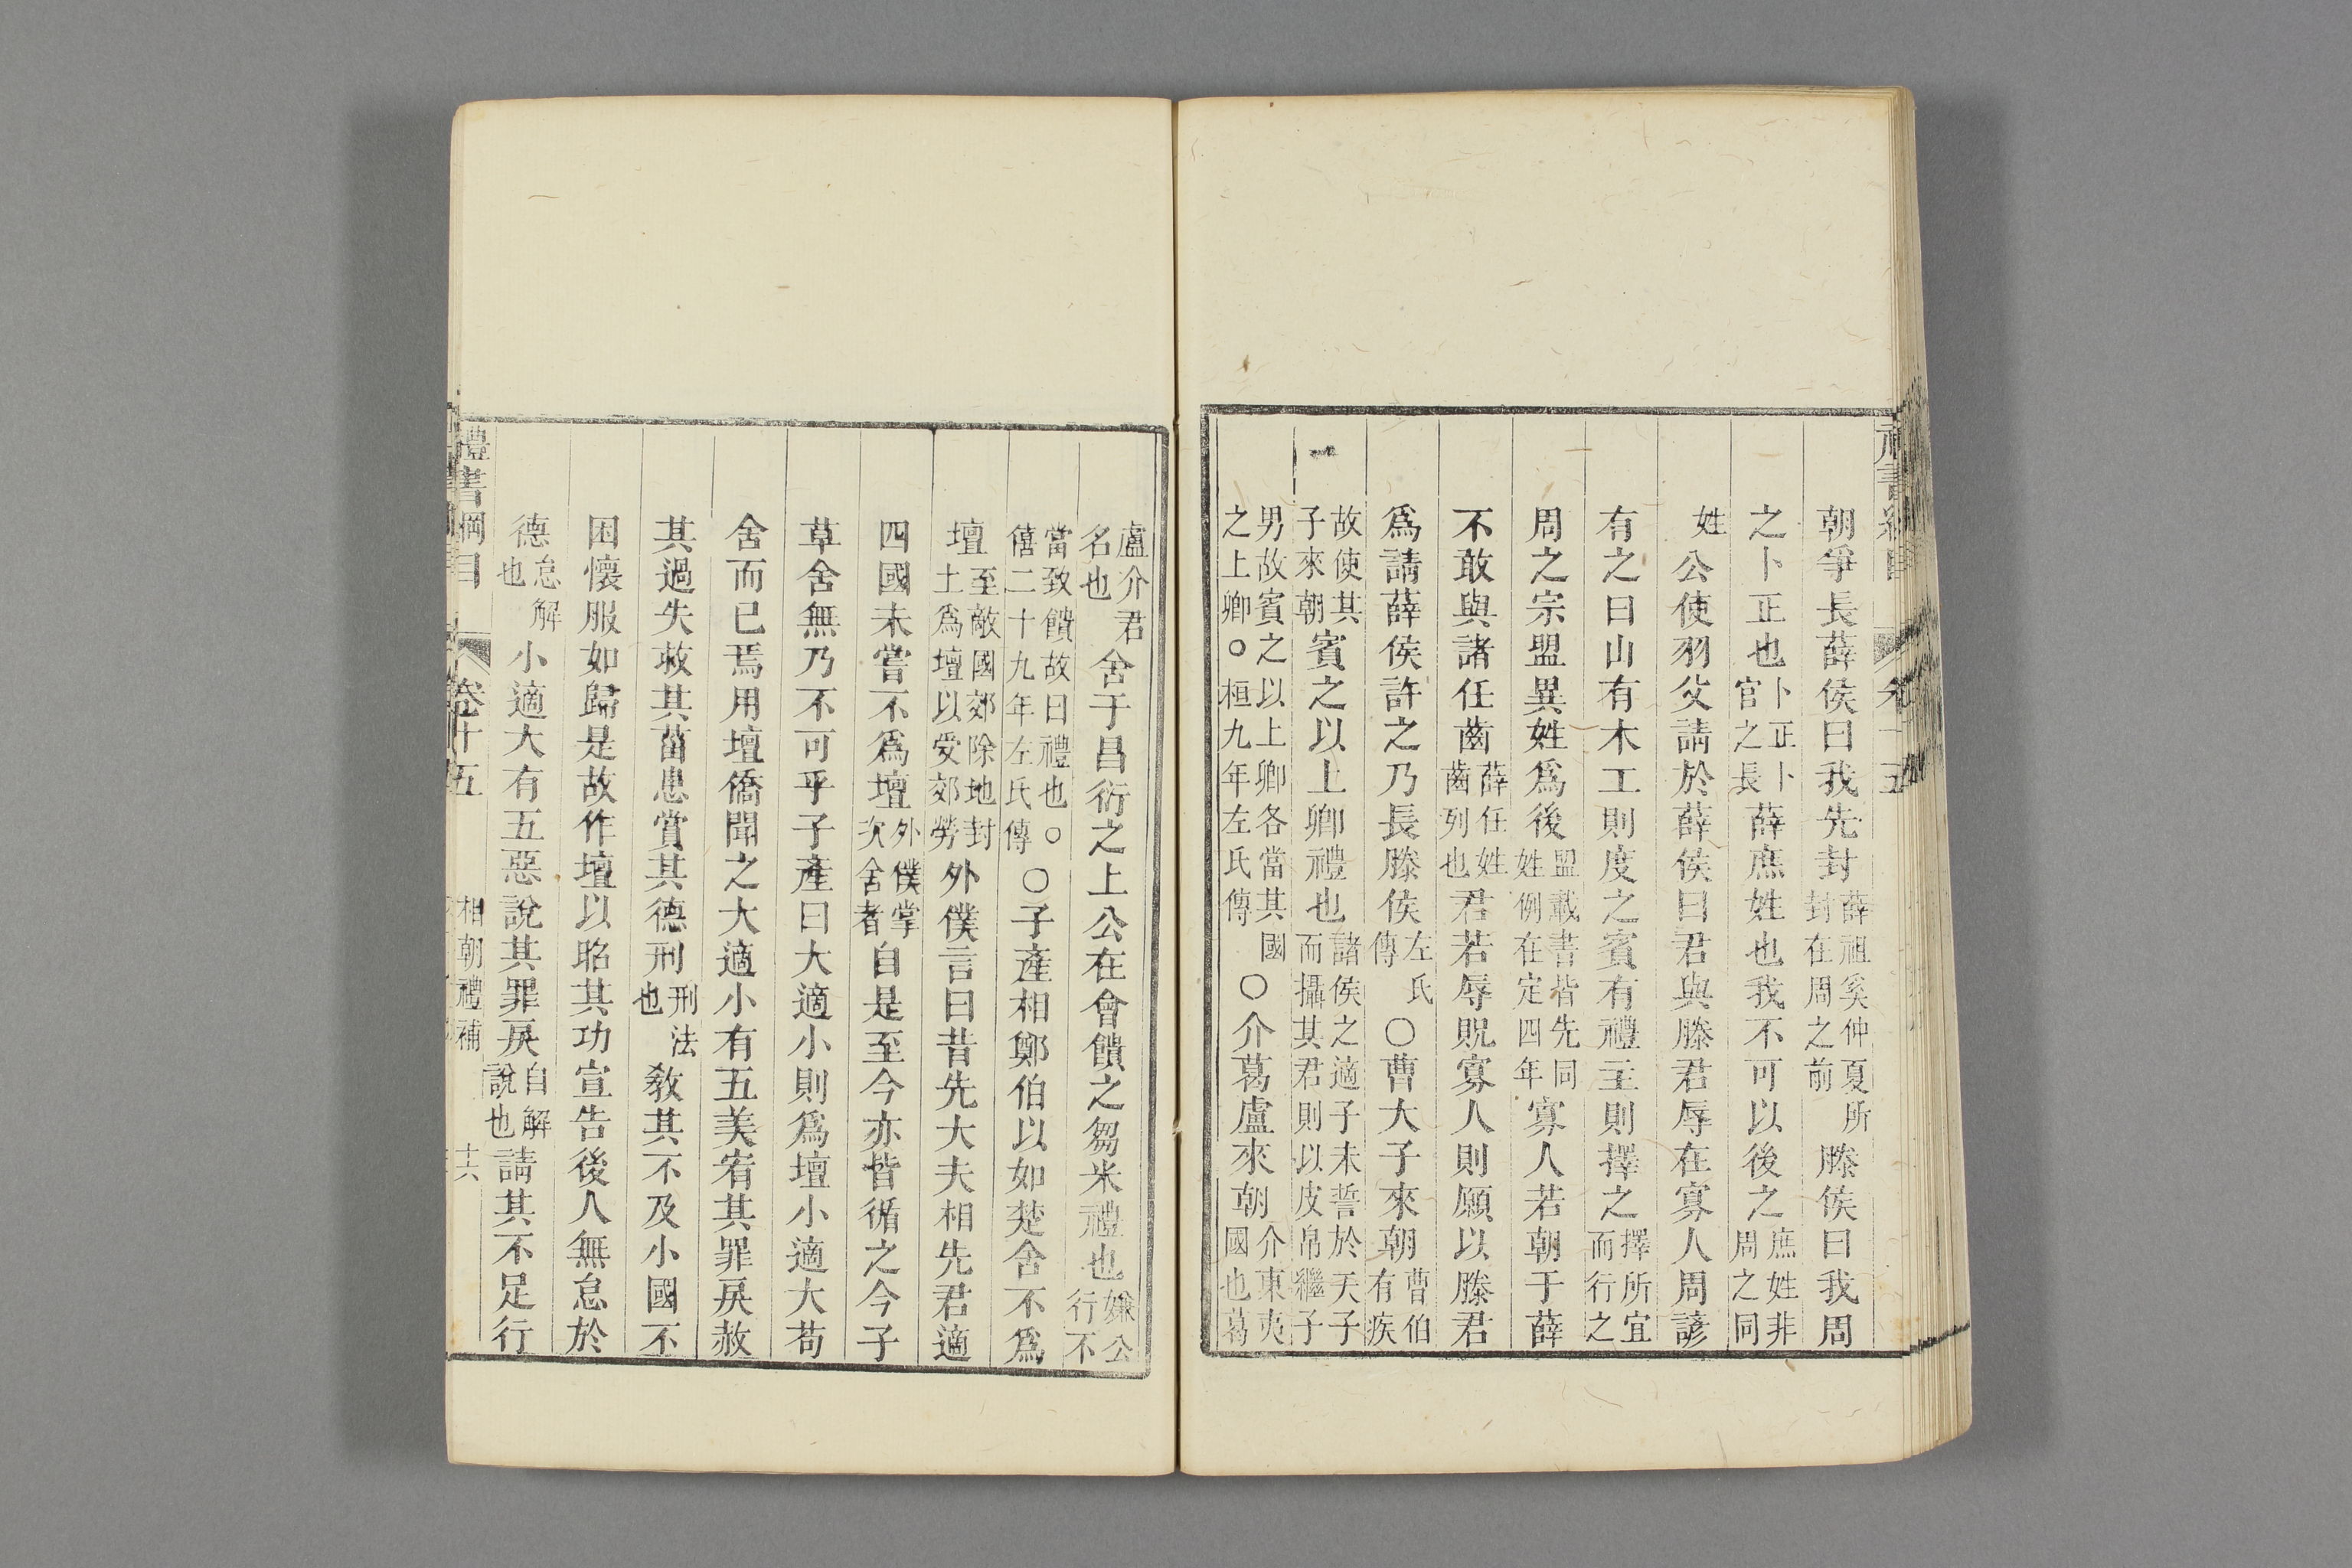 朝爭長薛侯曰我先封薛祖奚仲夏所封在周之前滕侯曰我周
之卜正也卜正卜官之長薛庶姓也我不可以後之庶姓非周之同
姓公使羽父請於薛侯曰君與滕君辱在寡人周諺
有之曰山有木工則度之賓有禮主則擇之擇所宜而行之
周之宗盟異姓爲後盟載書皆先同姓例在定四年寡人若朝于薛
不敢與諸任齒薛任姓齒列也君若辱貺寡人則願以滕君
爲請薛侯許之乃長滕侯左氏傳○曹大子來朝曹伯有疾
故使其子來朝賓之以上卿禮也諸侯之適子未誓於天子而攝其君則以皮帛繼子
男故賓之以上卿各當其國之上卿○桓九年左氏傳○介葛盧來朝介東夷國也葛
盧介君名也舍于昌衍之上公在會饋之芻米禮也嫌公行不
當致饋故曰禮也○僖二十九年左氏傳○子產相鄭伯以如楚舍不爲
壇至敵國郊除地封土爲壇以受郊勞外僕言曰昔先大夫相先君適
四國未嘗不爲壇外僕掌次舍者自是至今亦皆循之今子
草舍無乃不可乎子產曰大適小則爲壇小適大苟
舍而已焉用壇僑聞之大適小有五美宥其罪戾赦
其過失救其菑患賞其德刑刑法也教其不及小國不
困懷服如歸是故作壇以昭其功宣告後人無怠於
德怠解也小適大有五惡說其罪戾自解說也請其不足行
禮書綱目 卷十五 相朝禮補 十六